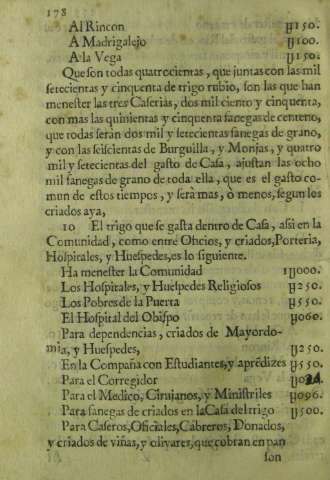 178
Al Rincon y150.
A Madrigalejo y100.
A la Vega y150.
Que son todas quatrocientas, que juntas con las mil
setecientas y cinquenta de trigo rubio, son las que han
menester las tres Caserias, dos mil ciento y cinquenta,
con mas las quinientas y cinquenta fanegas de centeno,
que todas serán dos mil y setecientas fanegas de grano,
y con las seiscientas de Burguilla, y Monjas, y quatro
mil y setecientas del gasto de Casa, ajustan las ocho
mil fanegas de grano de toda ella, que es el gasto co-
mun de estos tiempos, y será mas, ò menos, segun los
criados aya,
10 El trigo que se gasta dentro de Casa, assi en la
Comunidad, como entre Oficios, y criados, Porteria,
Hospitales, y Huespedes, es lo siguiente.
Ha menester la Comunidad 1y000.
Los Hospitales, y Huespedes Religiosos y250.
Los Pobres de la Puerta y550.
El Hospital del Obispo y060.
Para dependencias, criados de Mayordo-
mia, y Huespedes, y250.
En la Compaña con Estudiantes, y aprédizes y550.
Para el Corregidor
Para el Medico, Cirujanos, y Ministriles y096.
Para fanegas de criados en la Casa del trigo y500.
Para Caseros, Oficiales, Cabreros, Donados,
y criados de viñas, y olivares, que cobran en pan
son